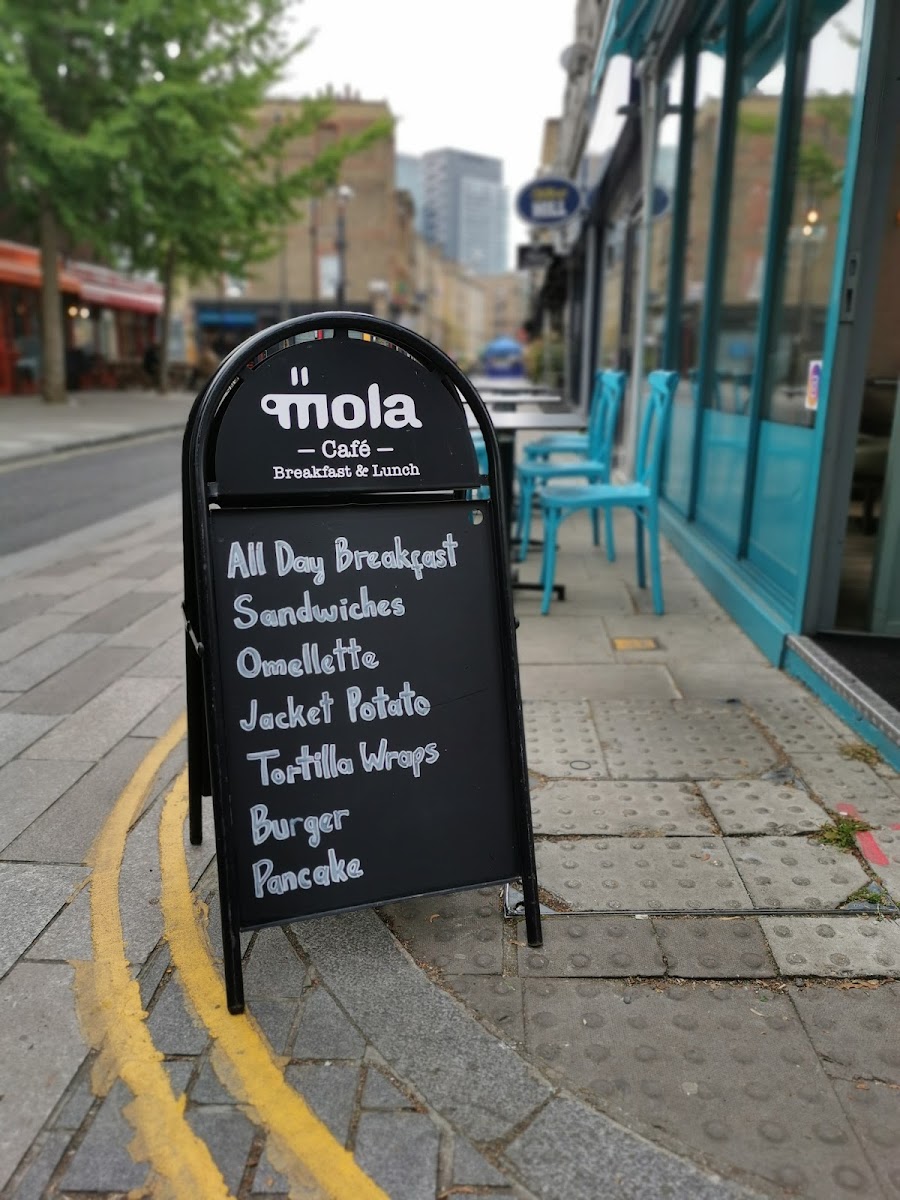 mola
– Café –
Breakfast & Lunch
All Day Breakfast
Sandwiches
Omellette
Jacket Potato
Tortilla Wraps
Burger
Pancake